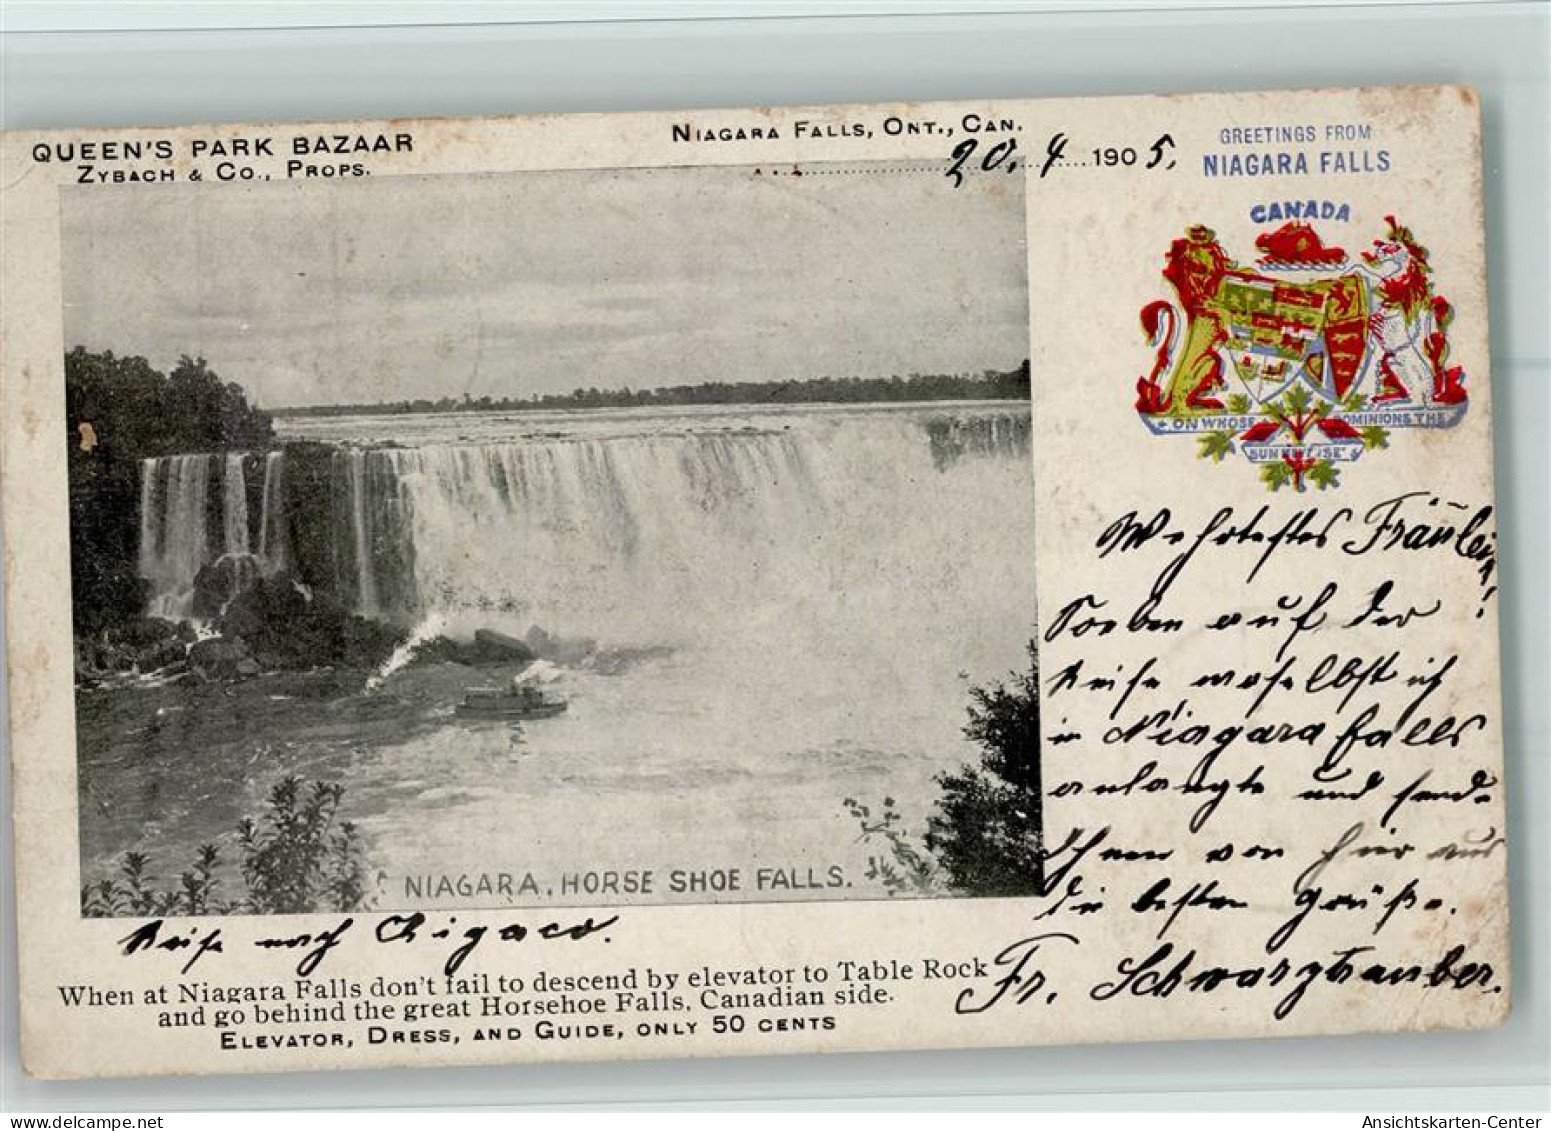 QUEEN'S PARK BAZAAR
ZYBACH & CO., PROPS.
NIAGARA FALLS, ONT., CAN.
20. 4. 1905.
GREETINGS FROM
NIAGARA FALLS
CANADA
ON WHOSE DOMINIONS THE
SUN NEV
Wehrtestes Fräulein!
Soeben auf der
Reise woselbst ich
in Niagara Falls
anlangte und sende
Ihnen von hier aus
die besten Grüße.
Fr. Schwarztrauber.
NIAGARA, HORSE SHOE FALLS.
Reise nach Chigaco.
When at Niagara Falls don't fail to descend by elevator to Table Rock
and go behind the great Horsehoe Falls, Canadian side.
ELEVATOR, DRESS, AND GUIDE, ONLY 50 CENTS
Ansichtskarten-Center